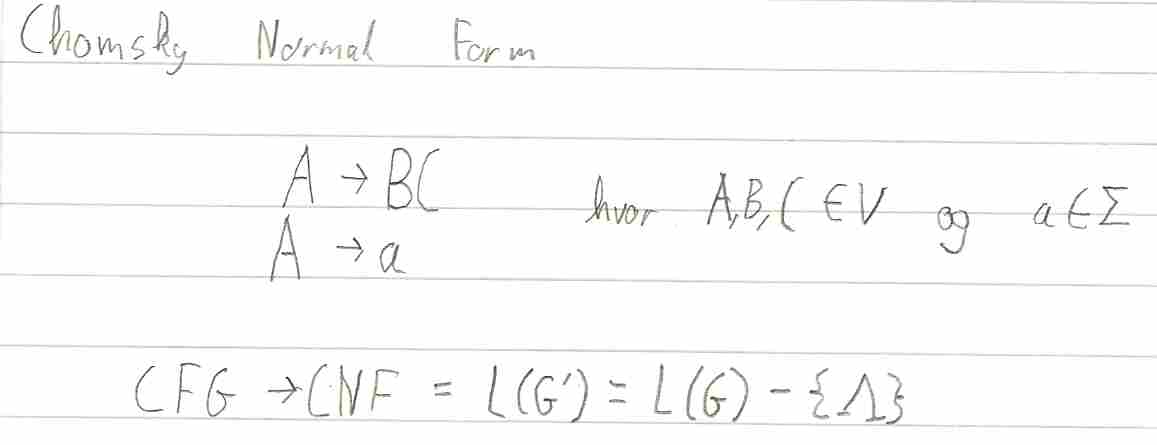 Chomsky Normal Form
A → BC hvor A,B,C ∈ V og a ∈ Σ
A → a
CFG → CNF = L(G') = L(G) - {Λ}